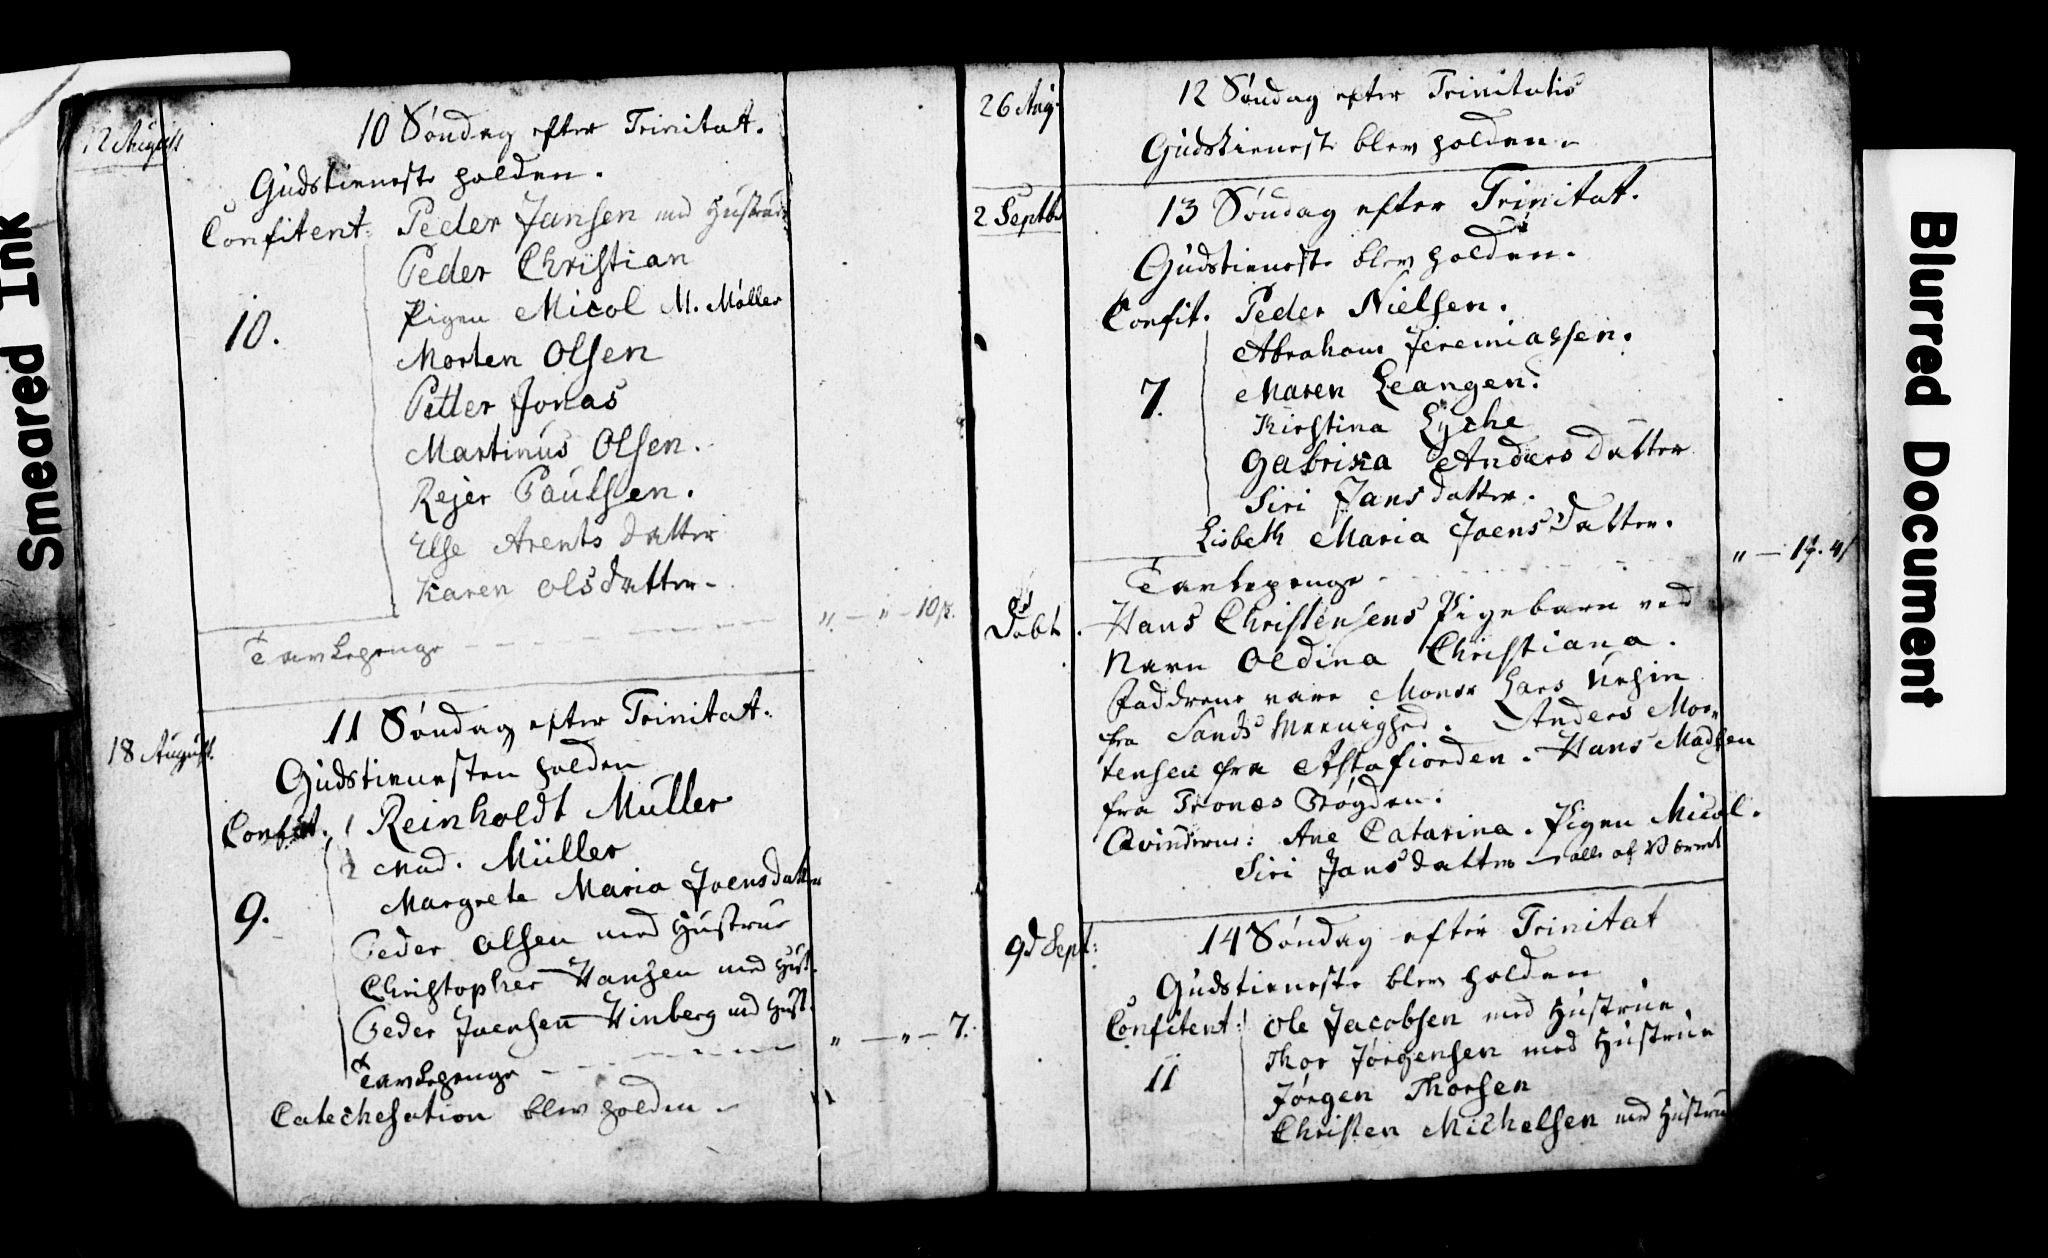 Smeared Ink
12 August
10 Søndag efter Trinitat.
Gudstieneste holden.
Confitent: Peder Jansen med Hustrue
Peder Christian
Pigen Micol M. Møller
10.
Morten Olsen
Petter Jonas
Martinus Olsen.
Rejer Paulsen.
Else Arents Datter
Karen Olsdatter.
Tavlepenge - - - „ - „ - 10 s.
18 August.
11 Søndag efter Trinitat.
Gudstienesten holden
Confit. 1 Reinholdt Müller
2 Mad. Müller
Margrete Maria Joensdatter
9.
Peder Olsen med Hustrue
Christopher Hansen med Hust.
Peder Joensen Winberg med Hust.
Tavlepenge - - - „ - „ - 7.
Catechesation blev holden.
26 Aug.
12 Søndag efter Trinitatis
Gudstieneste blev holden.
2 Septbr
13 Søndag efter Trinitat.
Gudstieneste blev holden.
Confit. Peder Nielsen.
Abraham Jeremiassen.
7.
Maren Leangen.
Kirstina Lyche
Gabrika Anders Datter
Siri Jans datter.
Lisbeth Maria Joens Datter.
Tavlepenge - - - „ -
Døbt. Hans Christensens Pigebarn ved
Navn Oldina Christiana.
Faddrene vare Monsr Lars
fra Sands Menighed. Anders Mor-
tensen fra Astafiorden. Hans Madsen
fra Tronæs Bøgden.
Qvinderne: Ane Catarina. Pigen Micol.
Siri Jans datter alle af Værret
9d Sept:
14 Søndag efter Trinitat
Gudstieneste blev holden
Confitent: Ole Jacobsen med Hustrue
Thor Jørgensen med Hustrue
11
Jørgen Thorsen
Christen Michelsen med Hustrue
Blurred Document